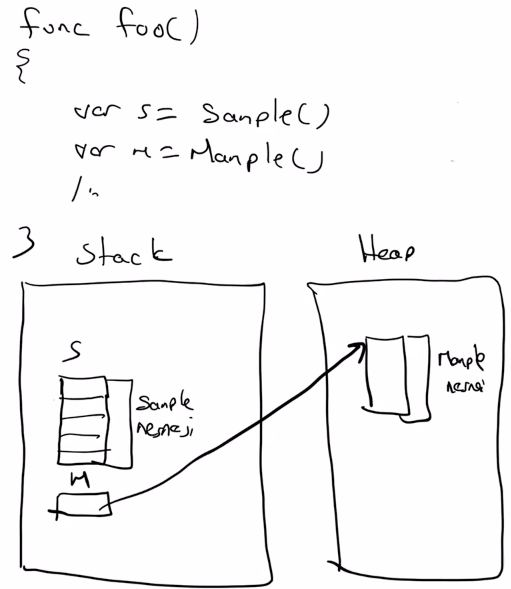 func foo()
{
var s = Sample()
var m = Mample()
//..
}
Stack
Heap
S
Sample
nesnesi
M
Mample
nesnesi